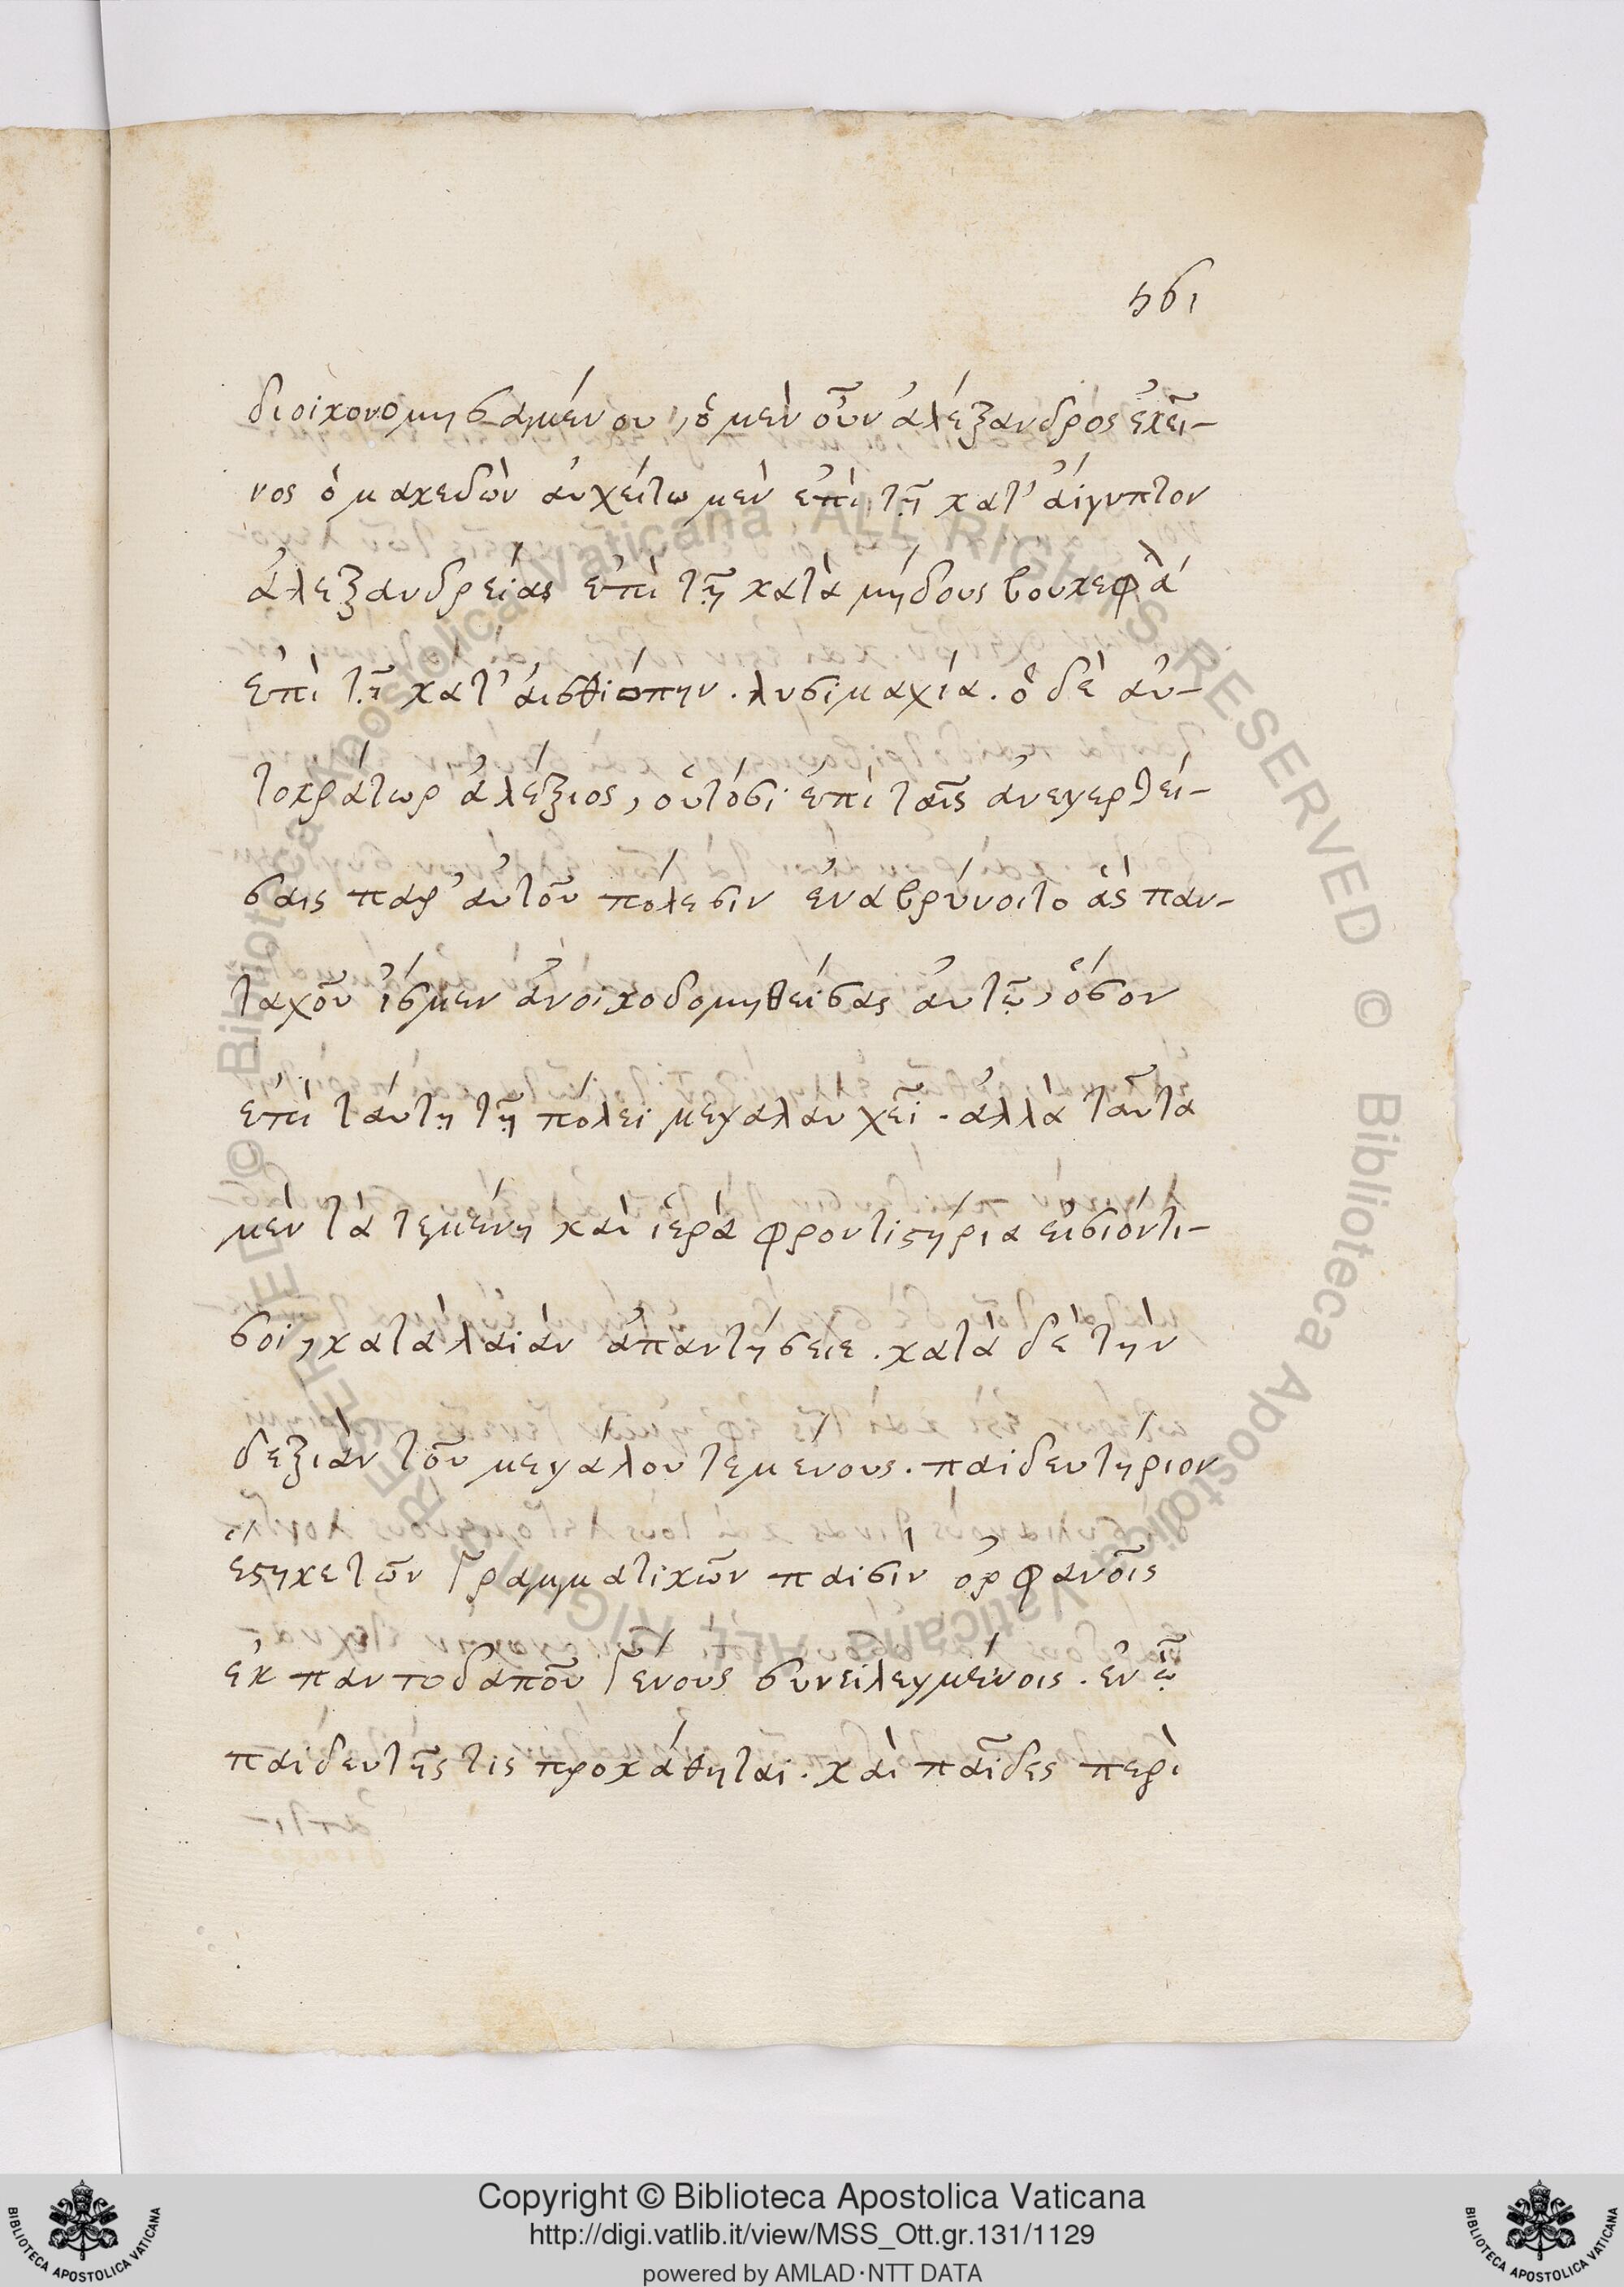 561
διοικονομησαμένου, ὁ μὲν οὖν ἀλέξανδρος ἐκεῖ-
νος ὁ μακεδὼν αὐχείτω μὲν ἐπὶ τῇ κατ' αἴγυπτον
ἀλεξανδρείας ἐπὶ τῇ κατὰ μήδους βουκεφάλ
ἐπὶ τῇ κατ' αισθιόπην. λυσιμαχία. ὁ δὲ αὐ-
τοκράτωρ ἀλέξιος, οὑτόσι ἐπὶ ταῖς ἀνεγερθεί-
σαις παρ' αὐτοῦ πόλεσιν ἐναβρύνοιτο ἃς παν-
ταχοῦ ἴσμεν ἀνοικοδομηθείσας αὐτῷ, ὅσον
ἐπὶ ταύτῃ τῇ πόλει μεγαλαυχεῖ. ἀλλὰ ταῦτα
μὲν τὰ τεμένη καὶ ἱερὰ φροντιστήρια εἰσιόντι-
σοι, κατὰ λαιὰν ἀπαντήσειε. κατὰ δὲ τὴν
δεξιὰν τοῦ μεγάλου τεμένους. παιδευτήριον
ἕστηκε τῶν γραμματικῶν παισὶν ὀρφανοῖς
ἐκ παντοδαποῦ γένους συνειλεγμένοις. ἐν ᾧ
παιδευτῆς τις προκάθηται. καὶ παῖδες περὶ
Copyright © Biblioteca Apostolica Vaticana
http://digi.vatlib.it/view/MSS_Ott.gr.131/1129
powered by AMLAD·NTT DATA